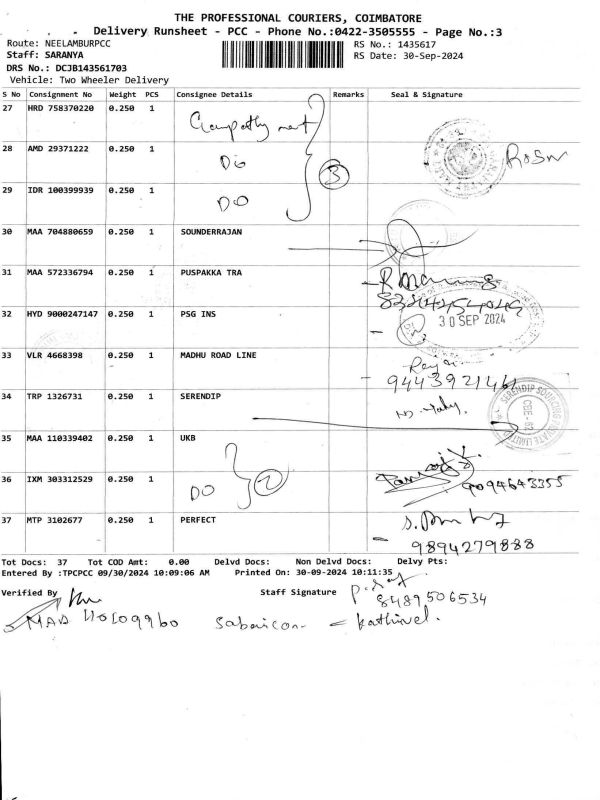 THE PROFESSIONAL COURIERS, COIMBATORE
Delivery Runsheet - PCC - Phone No.:0422-3505555 - Page No.:3
Route: NEELAMBURPCC
RS No.: 1435617
Staff: SARANYA
RS Date: 30-Sep-2024
DRS No.: DCJB143561703
Vehicle: Two Wheeler Delivery
S No Consignment No Weight PCS Consignee Details Remarks Seal & Signature
27 HRD 758370220 0.250 1
28 AMD 29371222 0.250 1 Do
29 IDR 100399939 0.250 1 DO
3
30 MAA 704880659 0.250 1 SOUNDERRAJAN
31 MAA 572336794 0.250 1 PUSPAKKA TRA
32 HYD 9000247147 0.250 1 PSG INS
30 SEP 2024
33 VLR 4668398 0.250 1 MADHU ROAD LINE
34 TRP 1326731 0.250 1 SERENDIP
SERENDIP SOURCING PRIVATE LIMITED
CBE-62
35 MAA 110339402 0.250 1 UKB
36 IXM 303312529 0.250 1 DO 2
9094643355
37 MTP 3102677 0.250 1 PERFECT
9894279888
Tot Docs: 37 Tot COD Amt: 0.00 Delvd Docs: Non Delvd Docs: Delvy Pts:
Entered By :TPCPCC 09/30/2024 10:09:06 AM Printed On: 30-09-2024 10:11:35
Verified By Staff Signature
8489506534
Kathirvel.